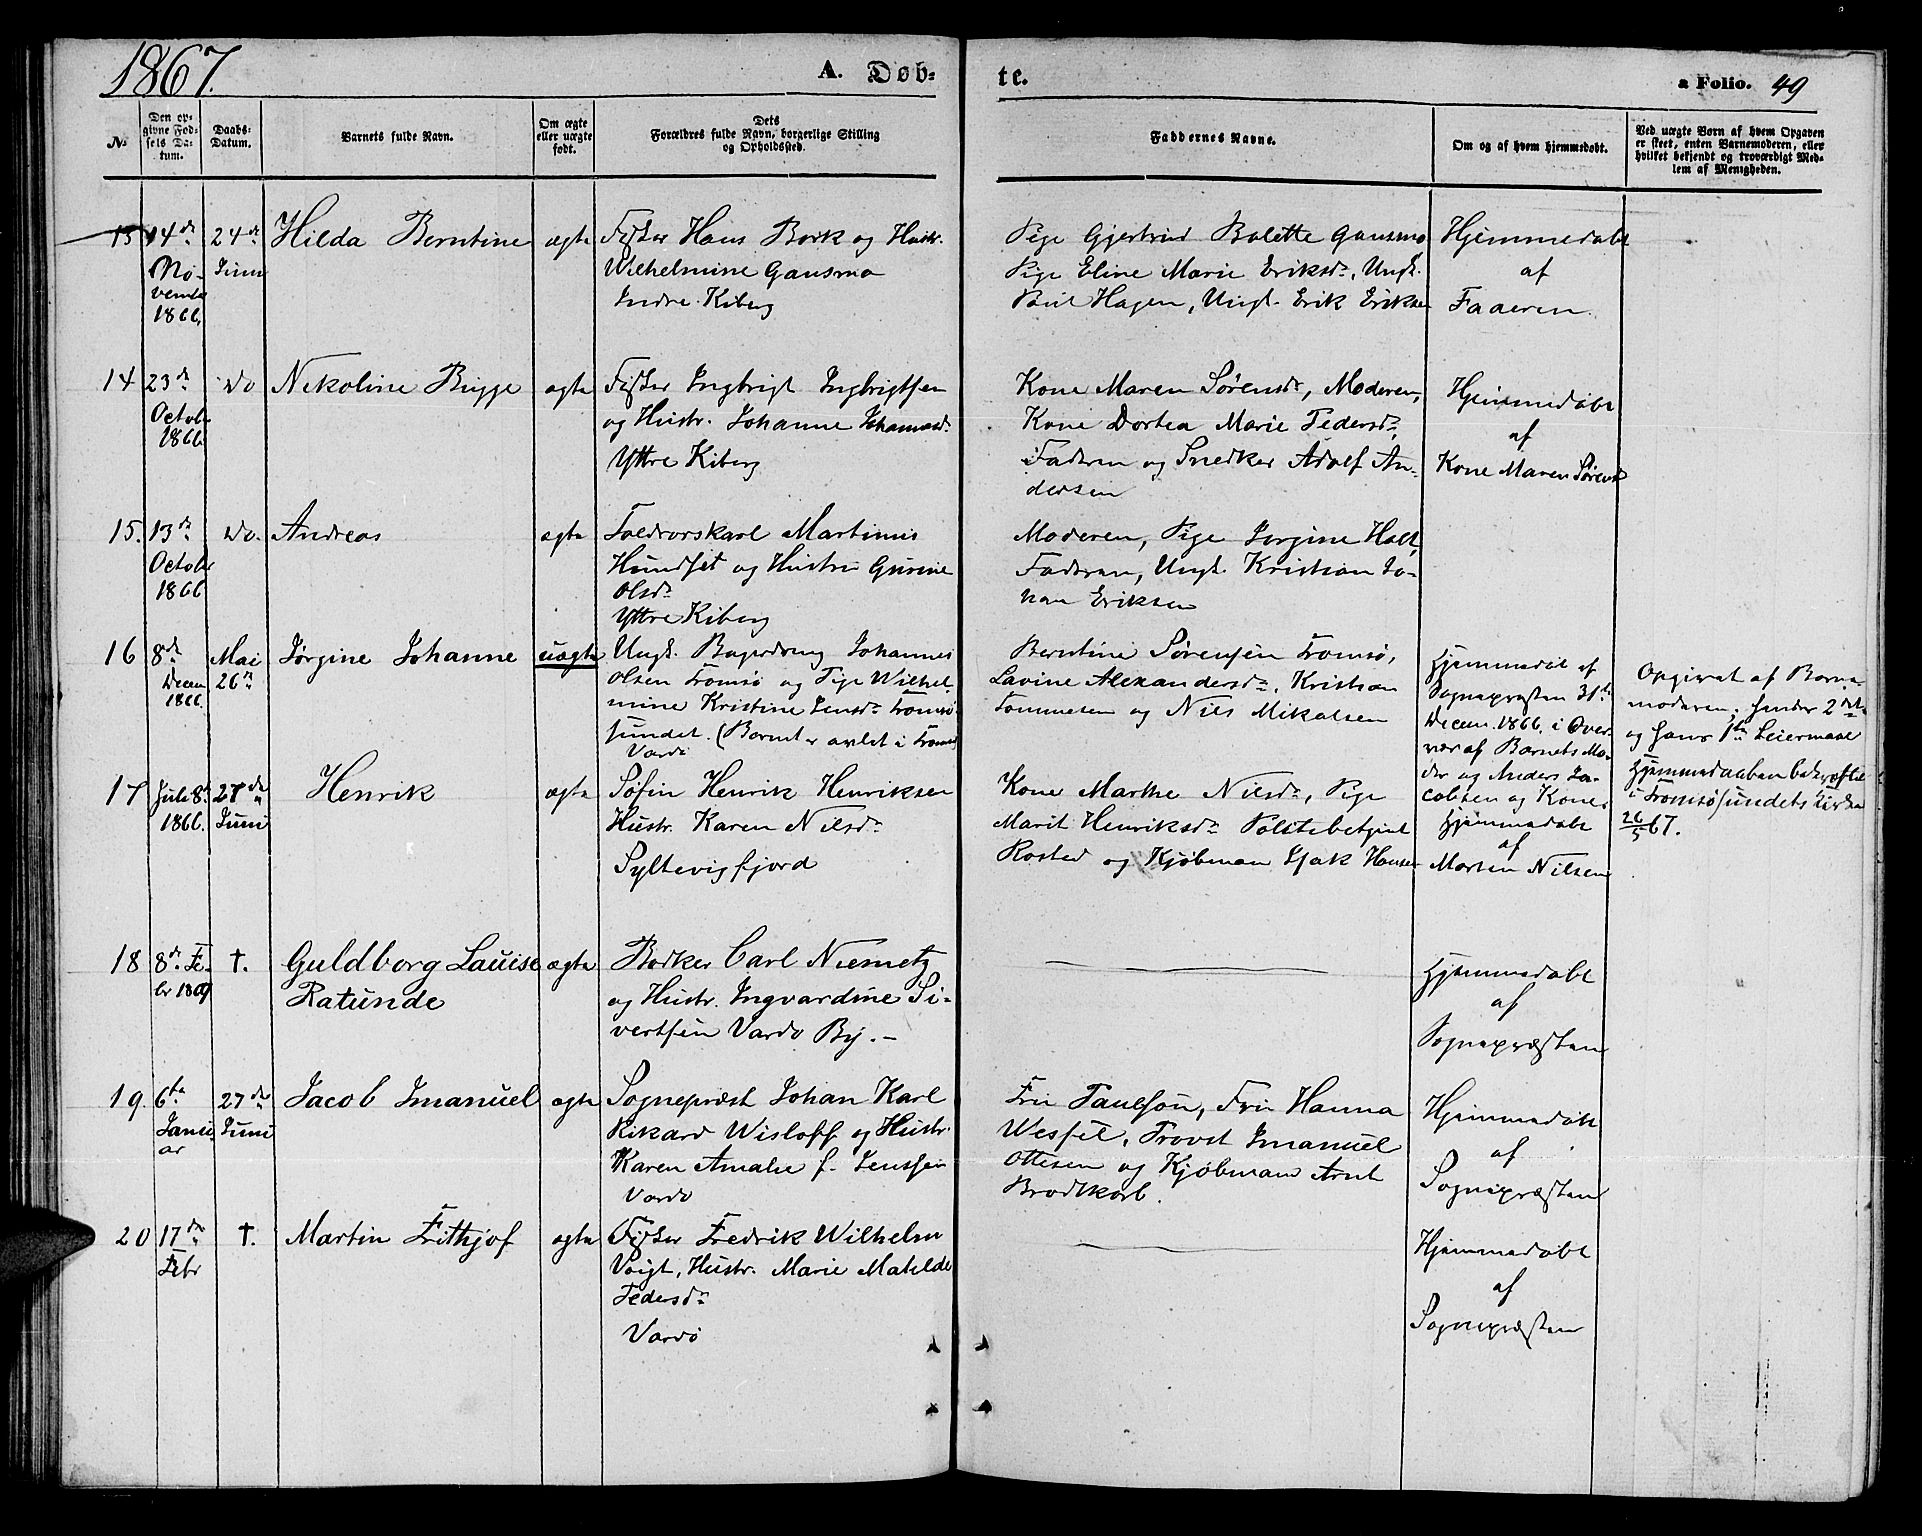 1867.
A. Døb-
te.
a Folio. 49
No
Den op-
givne Fød-
sels Da-
tum.
Daabs-
Datum.
Barnets fulde Navn.
Om ægte
eller uægte
født.
Dets
Forældres fulde Navn, borgerlige Stilling
og Opholdssted.
Faddernes Navne.
Om og af hvem hjemmedøbt.
Ved uægte Børn af hvem Opgaven
er skeet, enten Barnemoderen, eller
hvilket bekjendt og troværdigt Med-
lem af Menigheden.
13 14de
No-
vember
1866.
24de
Juni
Hilda Berntine
ægte
Fisker Hans Bork og Hustr.
Wilhelmine Gausmo
Indre Kiberg
Pige Gjertrud Balette Gausmo
Pige Eline Marie Eriksdr, Ungk.
Hagen, Ungk. Erik Eriksen
Hjemmedøbt
af
Faderen
14 23de
October
1866
do
Nekoline Bugge
ægte
Fisker Ingbrigt Ingbrigtsen
og Hustr. Johanne Johannesdr.
Yttre Kiberg
Kone Maren Sørensdr, Moderen,
Kone Dortea Marie Pedersdr,
Faderen og Snedker Adolf An-
dersen
Hjemmedøbt
af
Kone Maren Sørensdr
15. 13de
October
1866
do.
Andreas
ægte
Foedrorskarl Martinus
Hundset og Hustru Gurine
Olsdr
Yttre Kiberg
Moderen, Pige Jorgine Holt,
Faderen, Ungk. Kristian Jo-
han Eriksen
16 8de
Decem
1866.
Mai
26de
Jørgine Johanne
uægte
Ungk. Bagerdreng Johannes
Olsen Tromsø og Pige Wilhel-
mine Kristine Jensdr Tromsø-
sundet. (Barnet er avlet i Tromsø)
Vardö
Berntine Sørensen Tromsø,
Lavine Alexandersdr, Kristian
Tommesen og Nils Mikalsen
Hjemmedøbt af
Sognepræsten 31te
Decem. 1866. i Over-
vær af Barnets Mo-
der og Anders Ja-
cobsen og Kone.
Opgivet af Barne-
moderen, hendes 2det
og hans 1ste Leiermaal
Hjemmedaaben bekræftet
i Tromsøsundets Kirke
26/5 67.
17 Jule 8de
1866.
27de
Juni
Henrik
ægte
Søfin Henrik Henriksen
Hustr. Karen Nilsdr.
Syltevigfjord
Kone Marthe Nilsdr, Pige
Marit Henriksdr Politibetjent
Rosted og Kjøbman Isak Hansen
Hjemmedøbt
af
Morten Nilsen
18 8de Fe-
br 1867
†.
Guldborg Lauise
Ratunde
ægte
Bødker Carl Niemetz
og Hustr. Ingvardine Si-
vertsen Vardø By. -
Hjemmedøbt
af
Sognepræsten
19. 6te
Janu
ar
27de
Juni
Jacob Imanuel
ægte
Sognepræst Johan Karl
Rikard Wisløff og Hustr.
Karen Amalie f. Jenssen
Vardø
Fru Paulson, Fru Hanna
Wessel, Provst Imanuel
Ottesen og Kjøbman Arnt
Brodtkorb.
Hjemmedøbt
af
Sognepræsten
20 17de
Febr
†.
Martin Frithjof
ægte
Fisker Fredrik Wilhelm
Voigt, Hustr. Marie Matilde
Pedersdr
Vardø
Hjemmedøbt
af
Sognepræsten